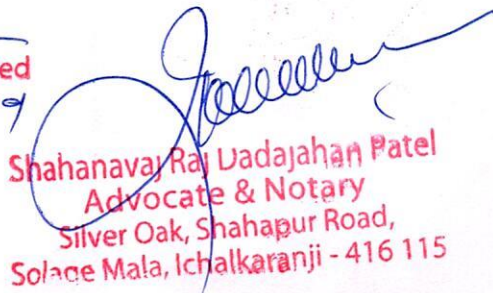 ed
Shahanavaj Raj Dadajahan Patel
Advocate & Notary
Silver Oak, Shahapur Road,
Solage Mala, Ichalkaranji - 416 115